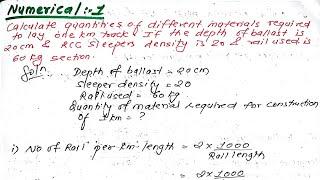 Numerical:-1
Calculate quantities of different materials required
to lay one km track. If the depth of ballast is
20cm & RCC Sleepers density is 20 & rail used is
60 kg section.
Soln.
Depth of ballast = 20cm
Sleeper density = 20
Rail used = 60 kg
Quantity of material required for construction
of 1km = ?
i) No of Rail per km length = 2 x 1000
Rail length
= 2 x 1000